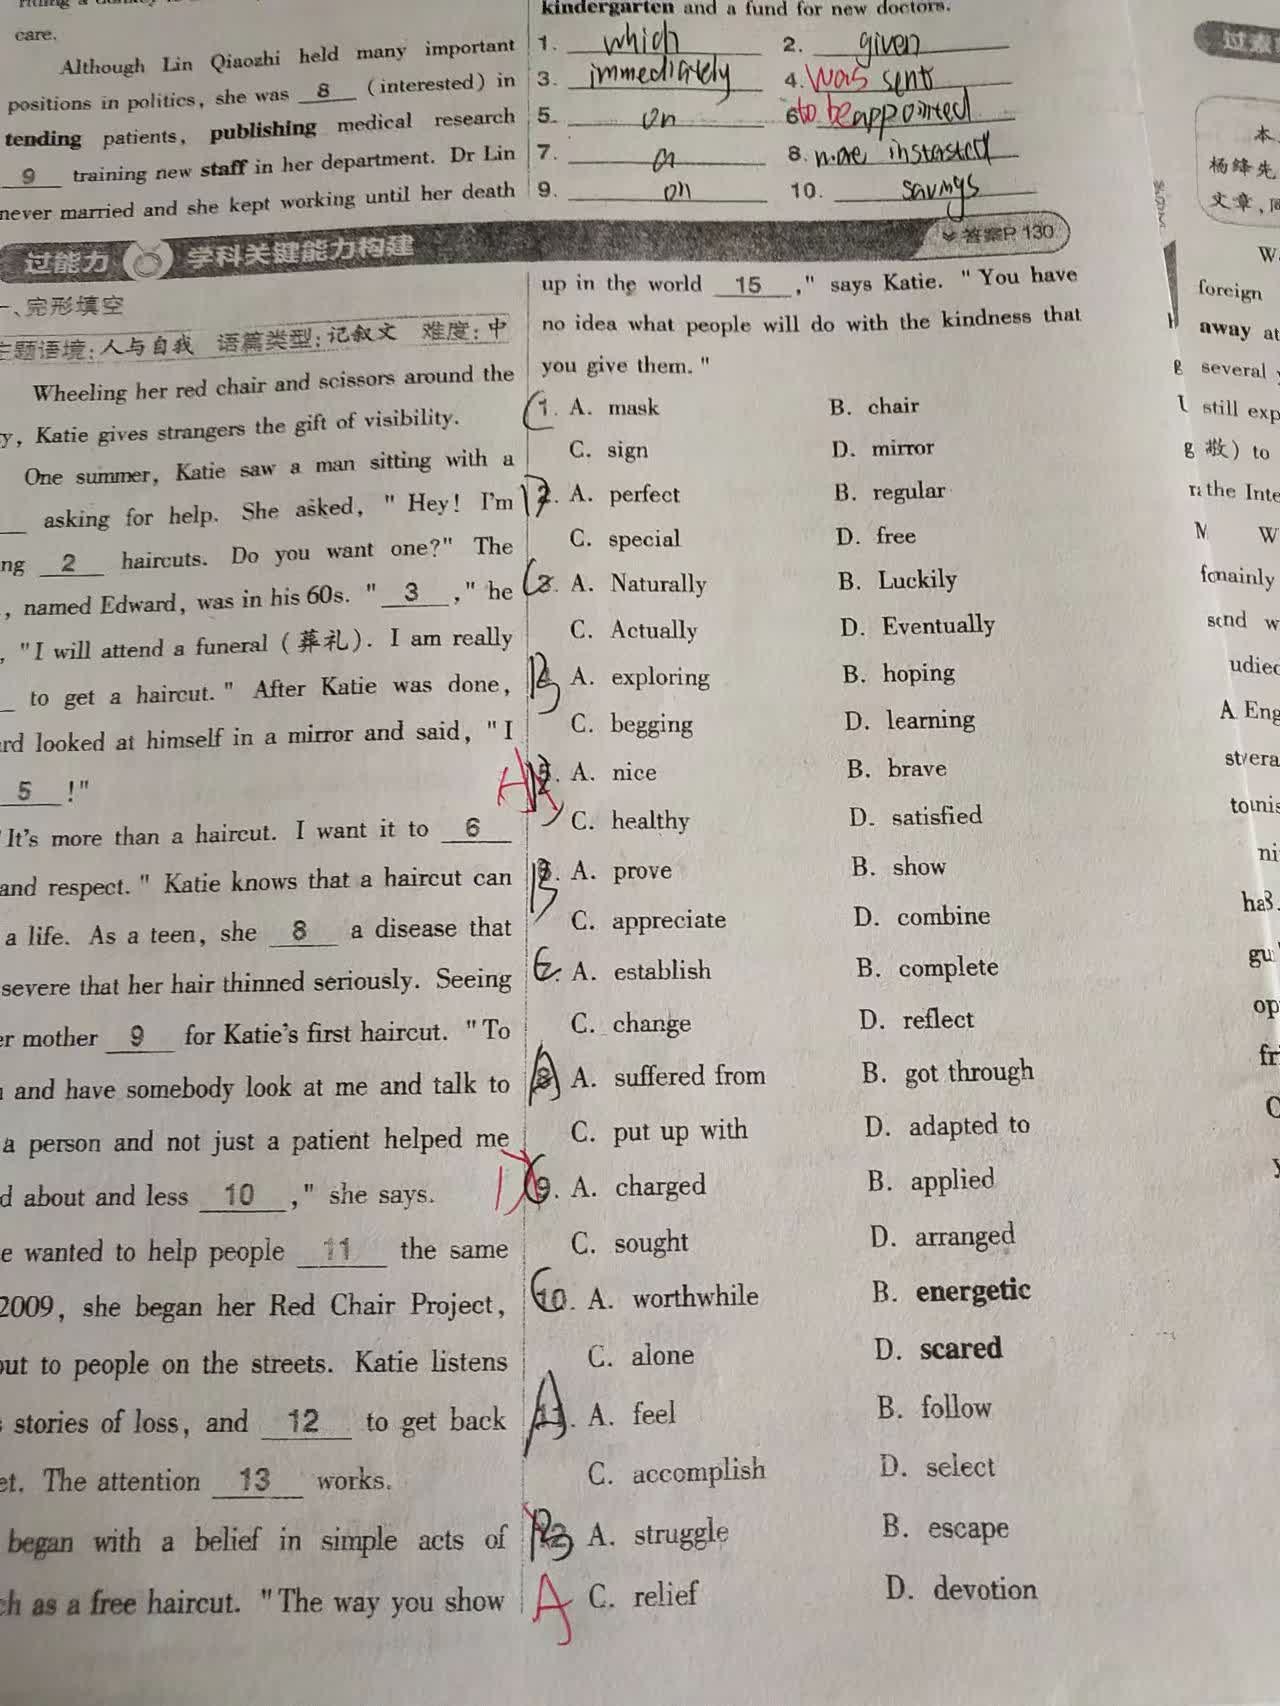 care.
Although Lin Qiaozhi held many important
positions in politics, she was 8 (interested) in
tending patients, publishing medical research
9 training new staff in her department. Dr Lin
never married and she kept working until her death
kindergarten and a fund for new doctors.
1. which 2. given
3. immediately 4. was sent
5. on 6. to be appointed
7. a 8.
9. on 10. savings
过能力 学科关键能力构建 答案P. 130
一、完形填空
主题语境:人与自我 语篇类型:记叙文 难度:中
Wheeling her red chair and scissors around the
y, Katie gives strangers the gift of visibility.
One summer, Katie saw a man sitting with a
asking for help. She asked, "Hey! I'm
ng 2 haircuts. Do you want one?" The
, named Edward, was in his 60s. " 3 ," he
, "I will attend a funeral (葬礼). I am really
to get a haircut." After Katie was done,
rd looked at himself in a mirror and said, "I
5 !"
"It's more than a haircut. I want it to 6
and respect." Katie knows that a haircut can
a life. As a teen, she 8 a disease that
severe that her hair thinned seriously. Seeing
er mother 9 for Katie's first haircut. "To
and have somebody look at me and talk to
a person and not just a patient helped me
d about and less 10 ," she says.
e wanted to help people 11 the same
2009, she began her Red Chair Project,
out to people on the streets. Katie listens
stories of loss, and 12 to get back
et. The attention 13 works.
began with a belief in simple acts of
ch as a free haircut. "The way you show
up in the world 15 ," says Katie. "You have
no idea what people will do with the kindness that
you give them."
C 1. A. mask B. chair
C. sign D. mirror
D 2. A. perfect B. regular
C. special D. free
C 3. A. Naturally B. Luckily
C. Actually D. Eventually
B A. exploring B. hoping
C. begging D. learning
A 5. A. nice B. brave
C. healthy D. satisfied
B A. prove B. show
C. appreciate D. combine
C A. establish B. complete
C. change D. reflect
A 8. A. suffered from B. got through
C. put up with D. adapted to
D C 9. A. charged B. applied
C. sought D. arranged
C 10. A. worthwhile B. energetic
C. alone D. scared
A 11. A. feel B. follow
C. accomplish D. select
B 12 A. struggle B. escape
A C. relief D. devotion
过素
本
杨绛先
文章,
foreign
away at
several
still exp
敬) to
the Inte
W
mainly
nd w
udied
Eng